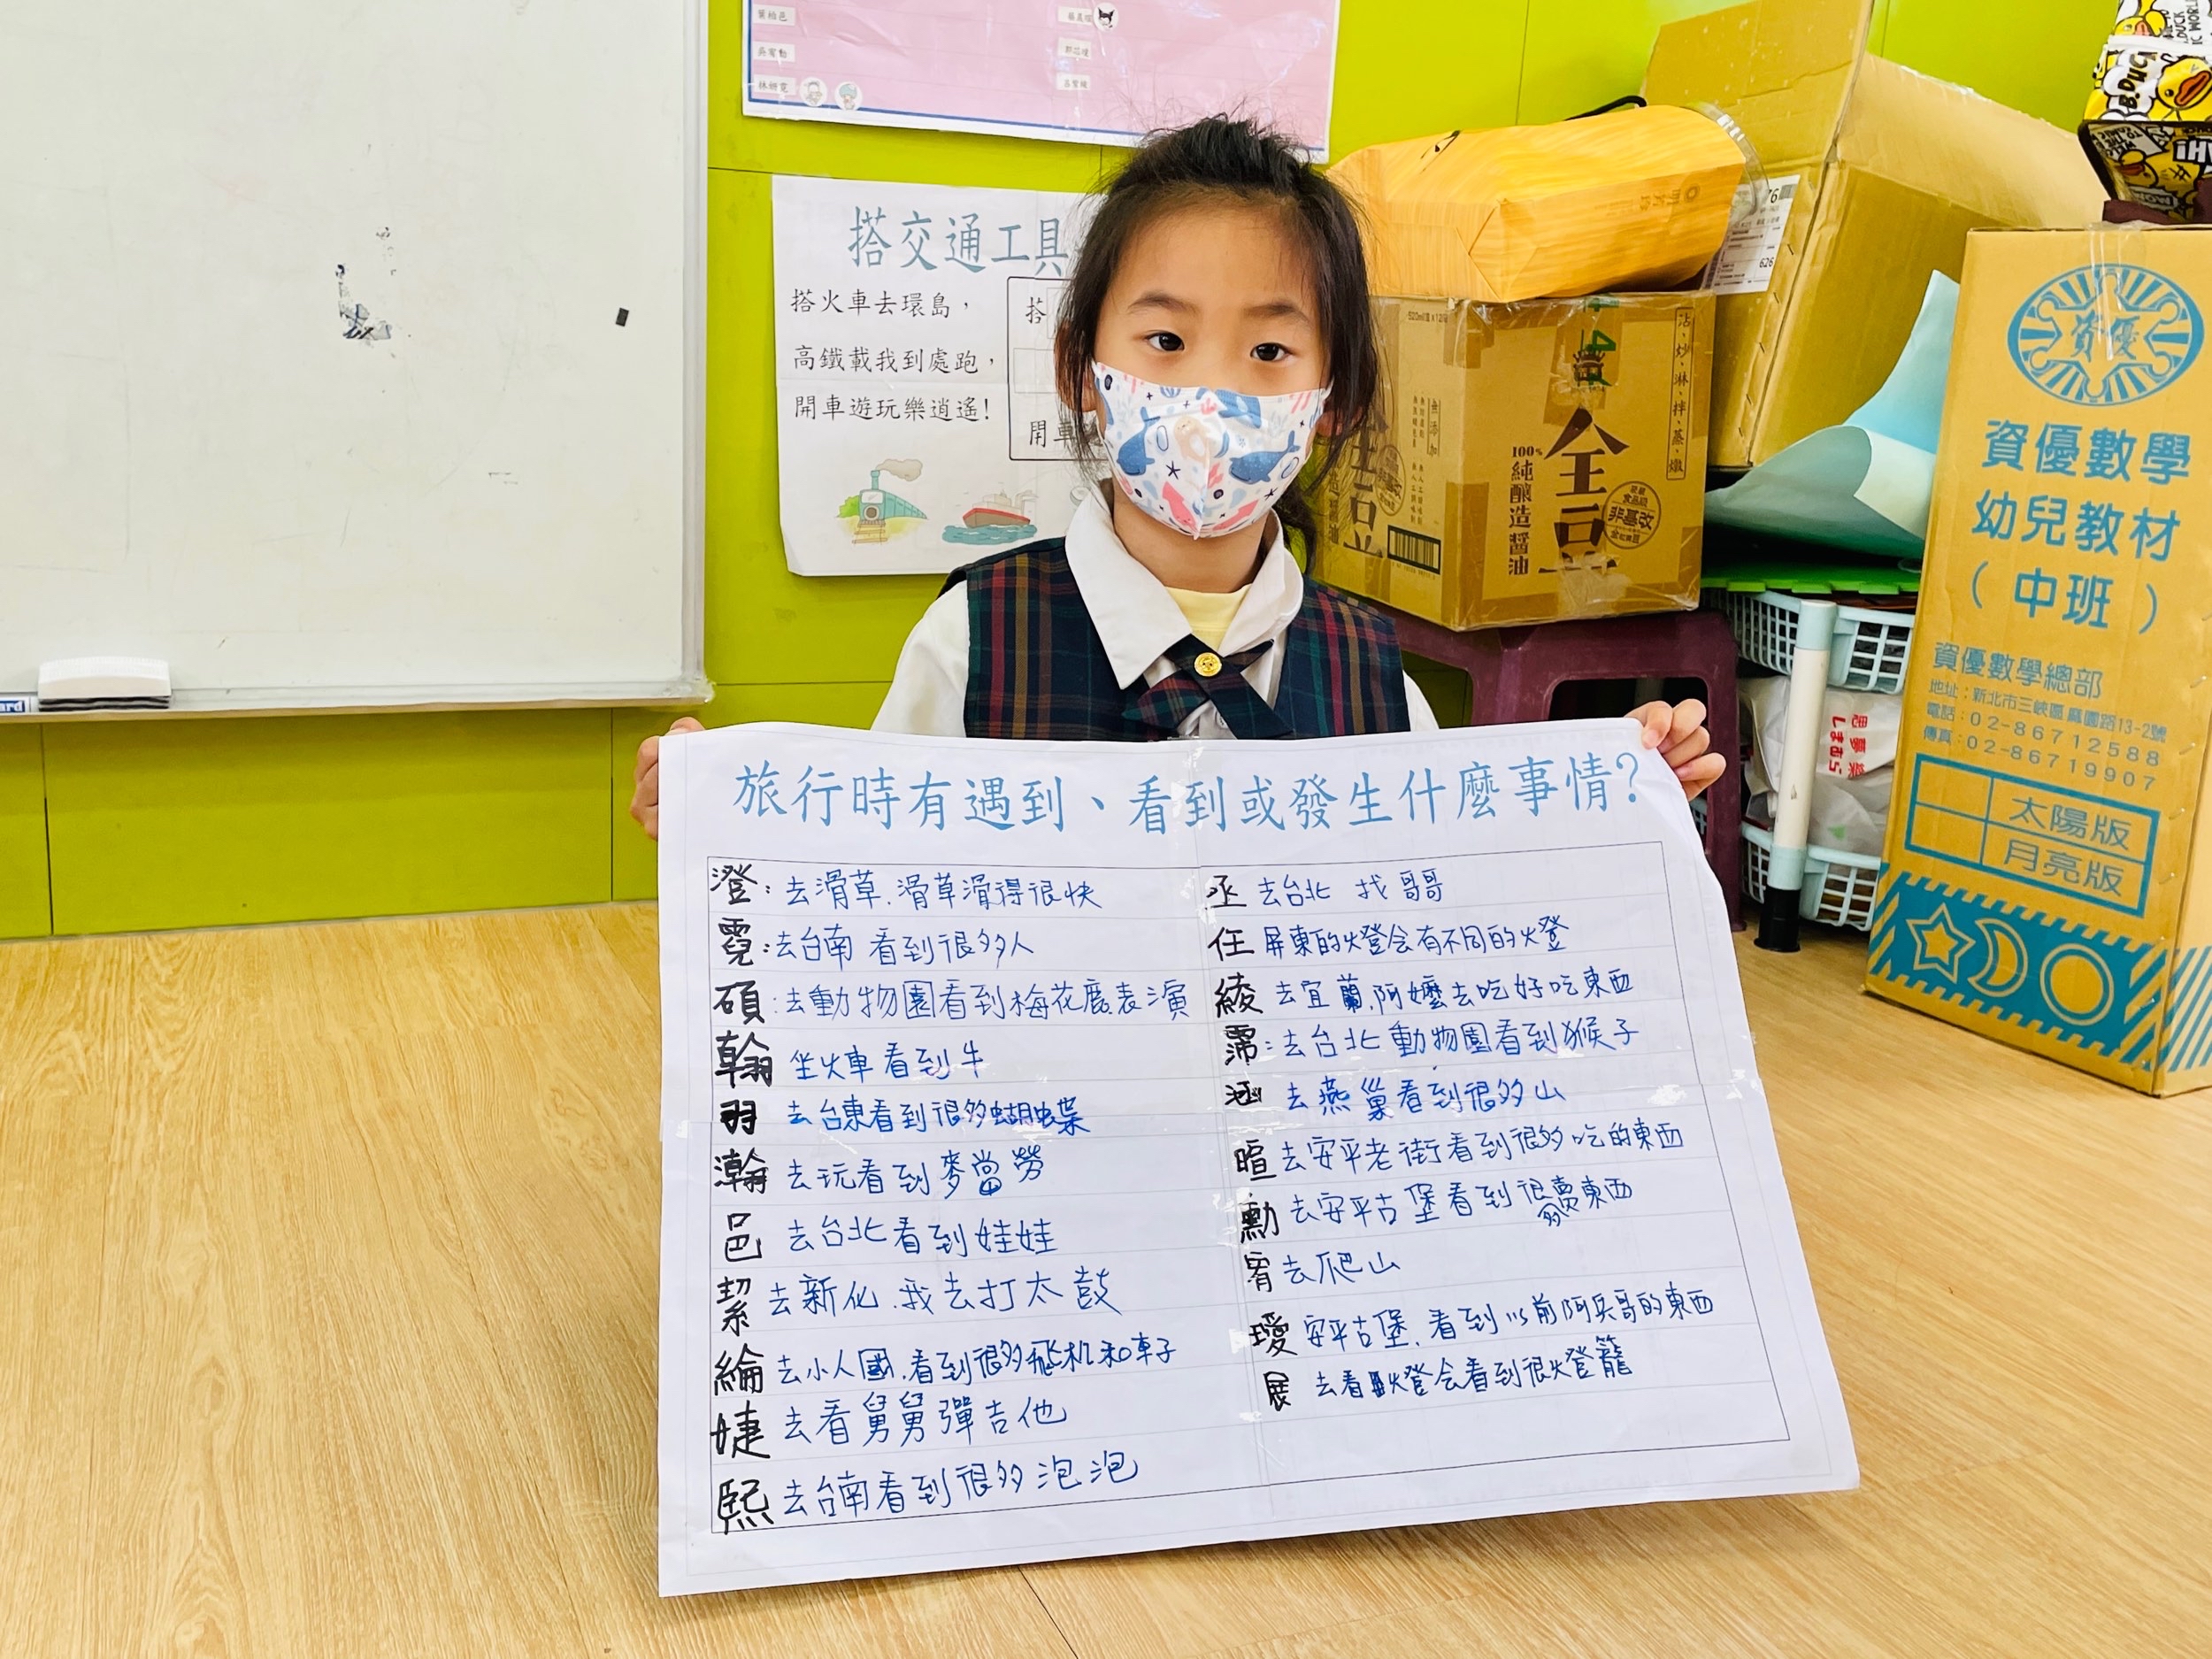 葉柏邑
吳宥勳
林妍霓
搭交通工具
搭火車去環島，
高鐵載我到處跑，
開車遊玩樂逍遙!
搭
開車
旅行時有遇到、看到或發生什麼事情?
澄：去滑草.滑草滑得很快
霓：去台南 看到很多人
碩：去動物園看到梅花鹿表演
翰 坐火車看到牛
羽 去台東看到很多蝴蝶
瀚 去玩看到麥當勞
邑 去台北看到娃娃
絜 去新化.我去打太鼓
綸 去小人國.看到很多飛机和車子
婕 去看舅舅彈吉他
熙 去台南看到很多泡泡
丞 去台北 找哥哥
任 屏東的燈会有不同的燈
綾 去宜蘭,阿嬤去吃好吃東西
霈：去台北動物園看到猴子
涵 去燕巢看到很多山
暄 去安平老街看到很多吃的東西
勳 去安平古堡看到很多賣東西
宥 去爬山
璦 安平古堡.看到以前阿兵哥的東西
展 去看燈会看到很燈籠
沾、炒、淋、拌、蒸、燉
520ml
100%
純釀造醬油
全豆
非基改
無添加
76
626
B.Duck
資優
資優數學
幼兒教材
（中班）
資優數學總部
地址：新北市三峽區麻園路13-2號
電話：02-86712588
傳真：02-86719907
太陽版
月亮版
思夢樂
しまむら